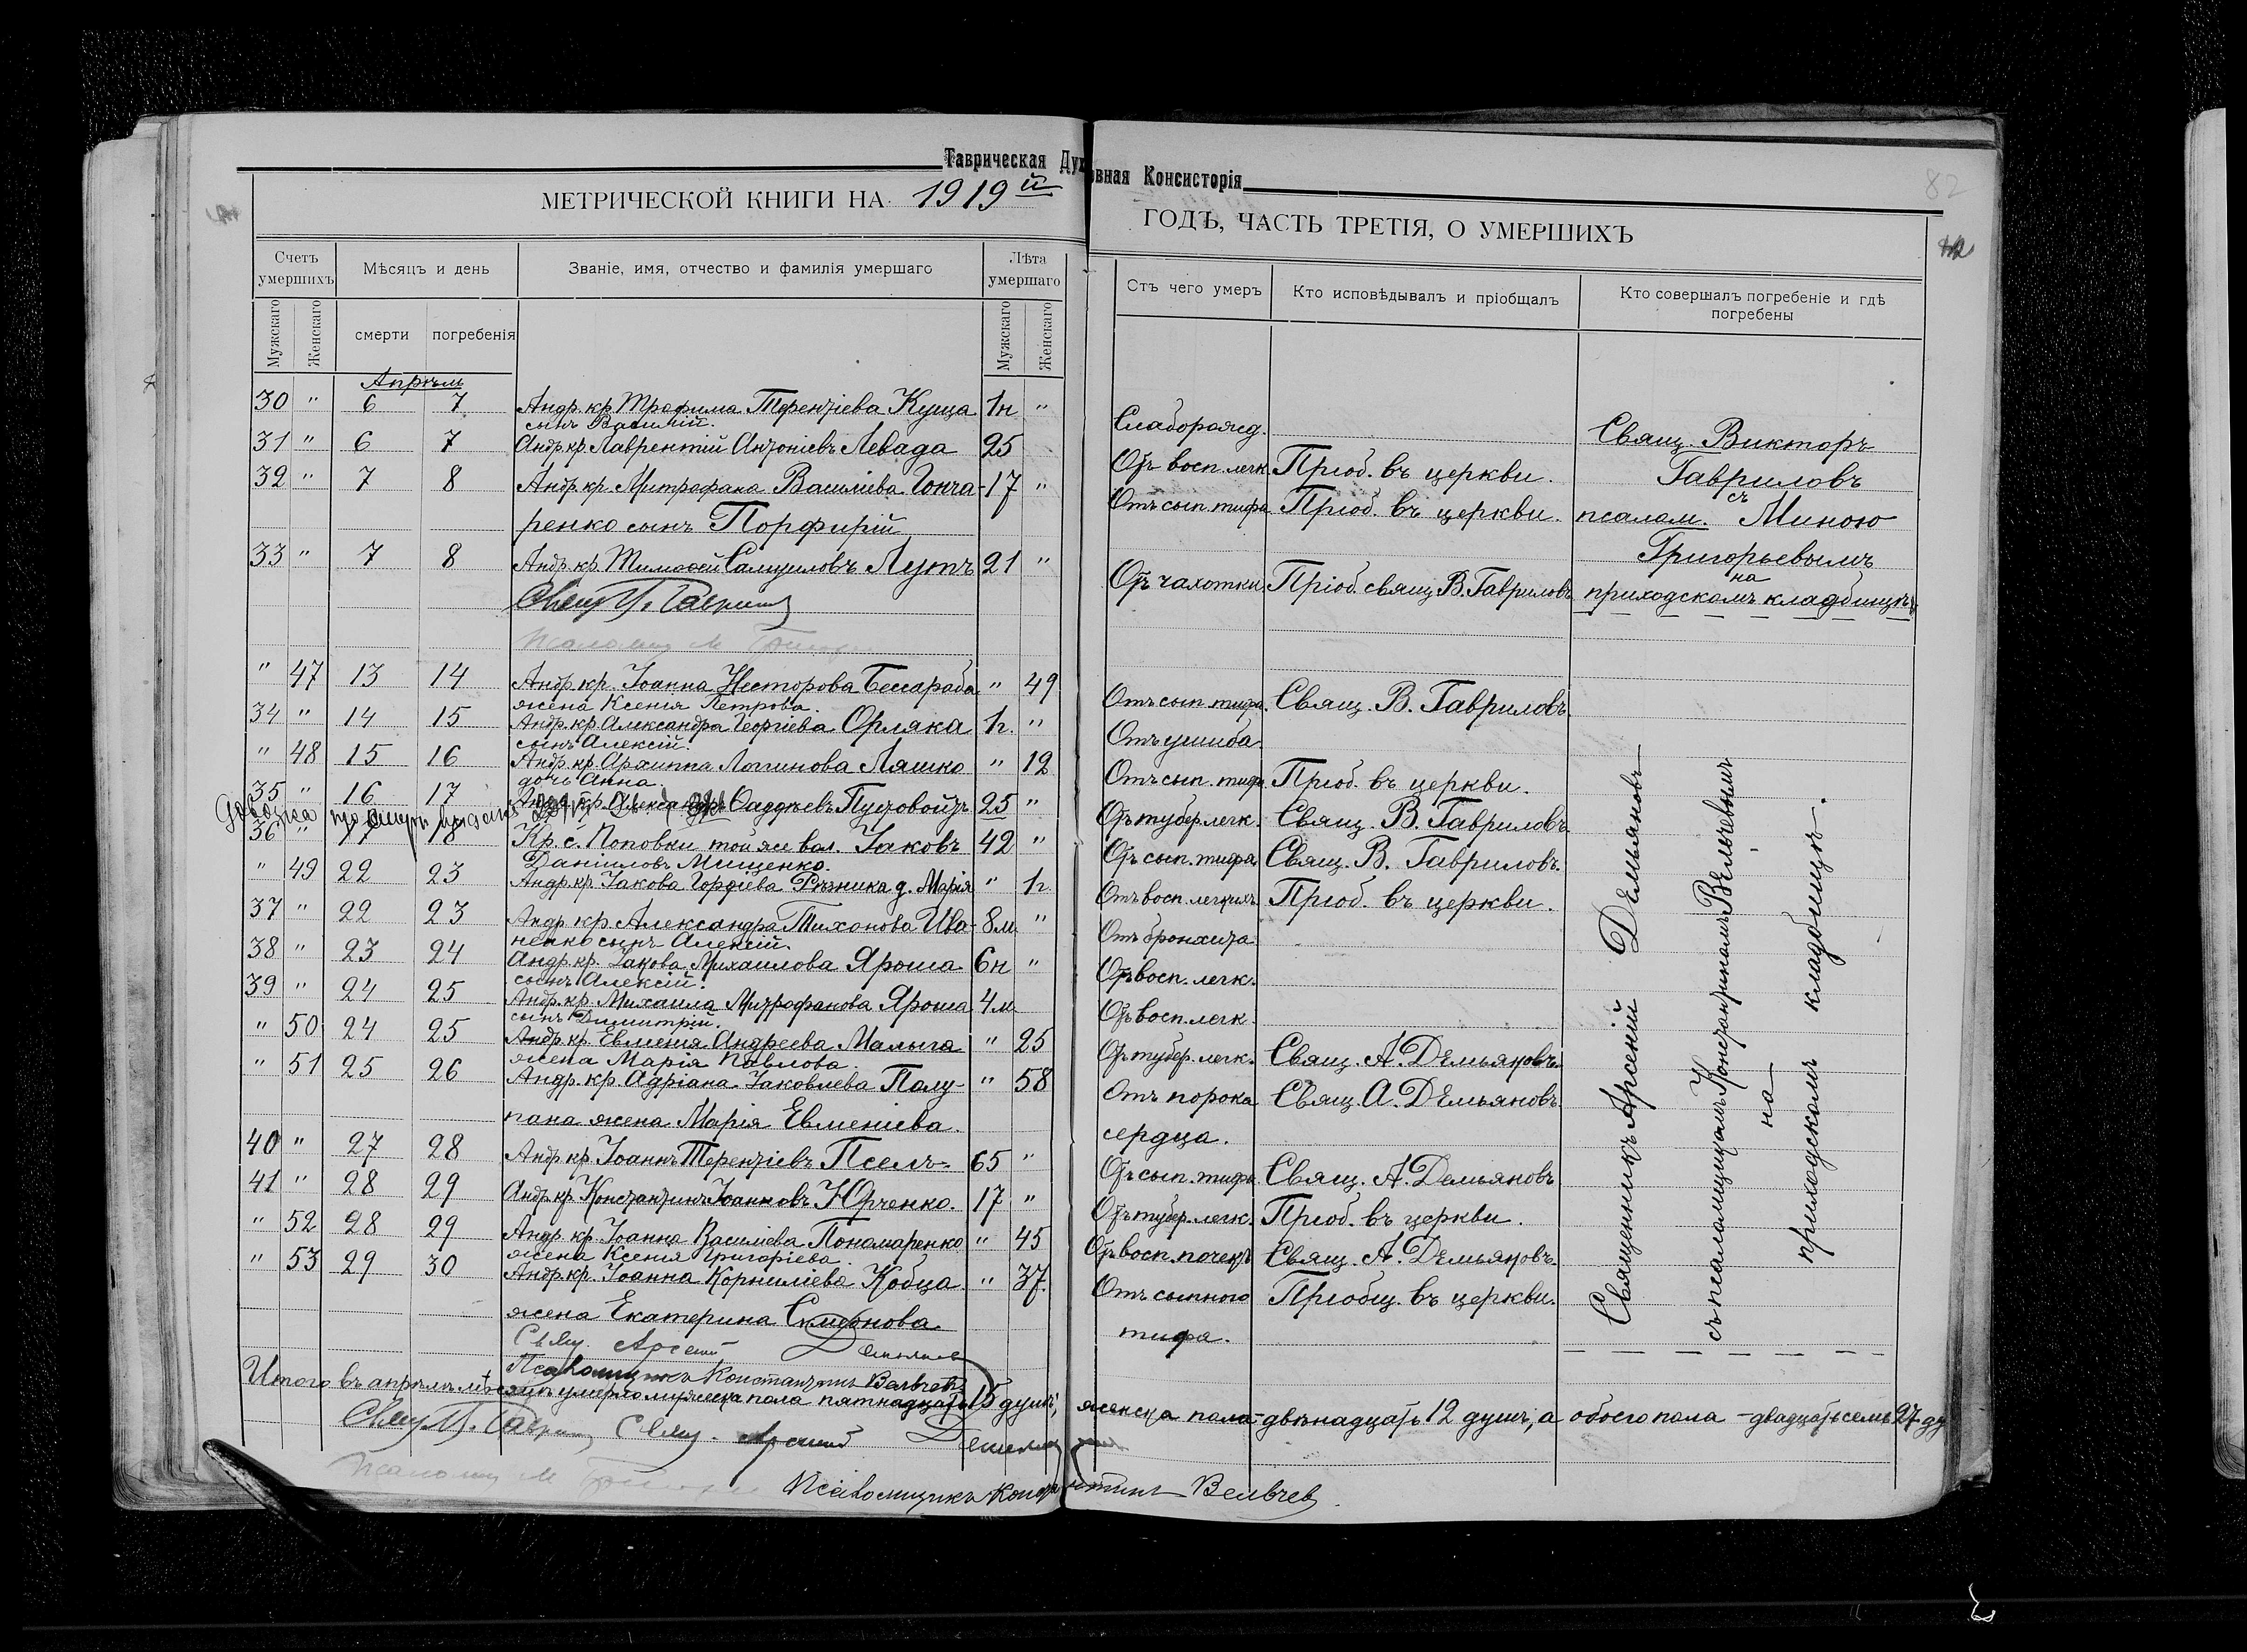 Таврическая Духовная Консисторія
82
МЕТРИЧЕСКОЙ КНИГИ НА 1919й ГОДЪ, ЧАСТЬ ТРЕТІЯ, О УМЕРШИХЪ
Счетъ умершихъ Мѣсяцъ и день Званіе, имя, отчество и фамилія умершаго Лѣта умершаго Отъ чего умеръ Кто исповѣдывалъ и пріобщалъ Кто совершалъ погребеніе и гдѣ погребены
Мужскаго Женскаго смерти погребенія Мужскаго Женскаго
Апрѣль
30 " 6 7 Андр. кр. Трофима Терентіева Куща 1н " Слаборожд.
сынъ Василій.
31 " 6 7 Андр. кр. Лаврентій Антоніевъ Левада 25 Отъ восп. легк. Пріоб. въ церкви.
32 " 7 8 Андр. кр. Митрофана Василіева Гонча- 17 " Отъ сып. тифа. Пріоб. въ церкви.
ренко сынъ Порфирій
33 " 7 8 Андр. кр. Тимоѳей Самуиловъ Лутъ 21 " Отъ чахотки Пріоб. свящ. В. Гавриловъ
Свящ. Викторъ
Гавриловъ
съ
псалом. Миною
Григорьевымъ
на
приходскомъ кладбищѣ.
Свящ. В. Гаврилов
Псаломщ М
" 47 13 14 Андр. кр. Іоанна Несторова Бессараба " 49 Отъ сып. тифа. Свящ. В. Гавриловъ.
жена Ксенія Петрова.
34 " 14 15 Андр. кр. Александра Георгіева Орляка 1г. " Отъ ушиба.
сынъ Алексій.
" 48 15 16 Андр. кр. Архиппа Логгинова Ляшко " 12 Отъ сып. тифа. Пріоб. въ церкви.
дочь Анна.
35 " 16 17 Андр. кр. Александръ Ѳаддеевъ Пустовойтъ 25 " Отъ тубер. легк. Свящ. В. Гавриловъ.
36 " 17 18 Кр. с. Поповки той же вол. Іаковъ 42 " Отъ сып. тифа Свящ. В. Гавриловъ.
Даніиловъ Мищенко.
" 49 22 23 Андр. кр. Іакова Гордіева Рѣзника д. Марія " 1г Отъ восп. легкихъ Пріоб. въ церкви.
37 " 22 23 Андр. кр. Александра Тихонова Ива- 8м " Отъ бронхита
ненко сынъ Алексій.
38 " 23 24 Андр. кр. Іакова Михаилова Яроша 6н " Отъ восп. легк.
сынъ Алексій.
39 " 24 25 Андр. кр. Михаила Митрофанова Яроша 4м Отъ восп. легк.
сынъ Димитрій.
" 50 24 25 Андр. кр. Евменія Андреева Малыга " 25 Отъ тубер. легк. Свящ. А. Демьяновъ.
жена Марія Павлова.
" 51 25 26 Андр. кр. Адріана Іаковлева Полу- " 58 Отъ порока Свящ. А. Демьяновъ.
пана жена Марія Евменіева. сердца.
40 " 27 28 Андр. кр. Іоаннъ Терентіевъ Пселъ. 65 " Отъ сып. тифа. Свящ. А. Демьяновъ
41 " 28 29 Андр. кр. Константинъ Іоанновъ Юрченко. 17 " Отъ тубер. легк. Пріоб. въ церкви.
" 52 28 29 Андр. кр. Іоанна Василіева Пономаренко " 45 Отъ восп. почекъ Свящ. А. Демьяновъ.
жена Ксенія Григоріева.
" 53 29 30 Андр. кр. Іоанна Корниліева Кобца " 37. Отъ сыпного Пріобщ. въ церкви.
жена Екатерина Симеонова. тифа.
Священникъ Арсеній Демьяновъ
съ псаломщикомъ Константиномъ Вельчевымъ
на
приходскомъ кладбищѣ.
Свящ. Арсеній Демьянов
Псаломщикъ Константинъ Вельчев
Итого въ апрѣлѣ мѣсяцѣ умерло мужеска пола пятнадцать 15 душъ, женска пола - двѣнадцать 12 душъ, а обоего пола - двадцать семь 27 ду
Свящ. В. Гаврилов Свящ. Арсений Демьянов
Псаломщ М
Псаломщикъ Константинъ Вельчев